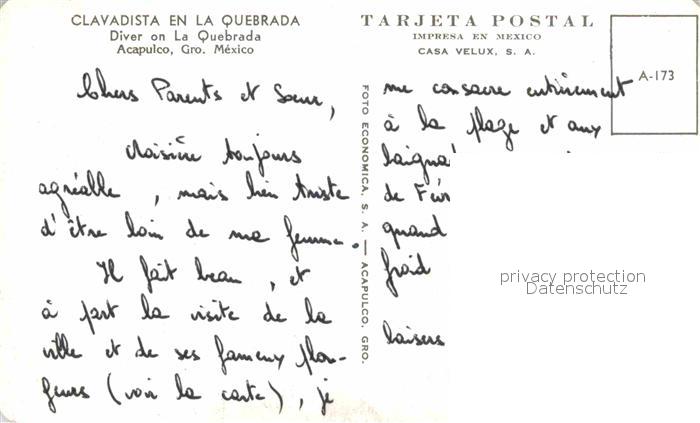 CLAVADISTA EN LA QUEBRADA
Diver on La Quebrada
Acapulco, Gro. México
Chers Parents et Sœur,
Croisière toujours
agréable, mais bien triste
d'être loin de ma femme.
Il fait beau, et
à part la visite de la
ville et de ses fameux plon-
geurs (voir la carte), je
FOTO ECONOMICA, S. A. — ACAPULCO, GRO.
TARJETA POSTAL
IMPRESA EN MEXICO
CASA VELUX, S. A.
A-173
me consacre entièrement
à la plage et aux
baigna
de Fév
quand
froid
baisers
privacy protection
Datenschutz